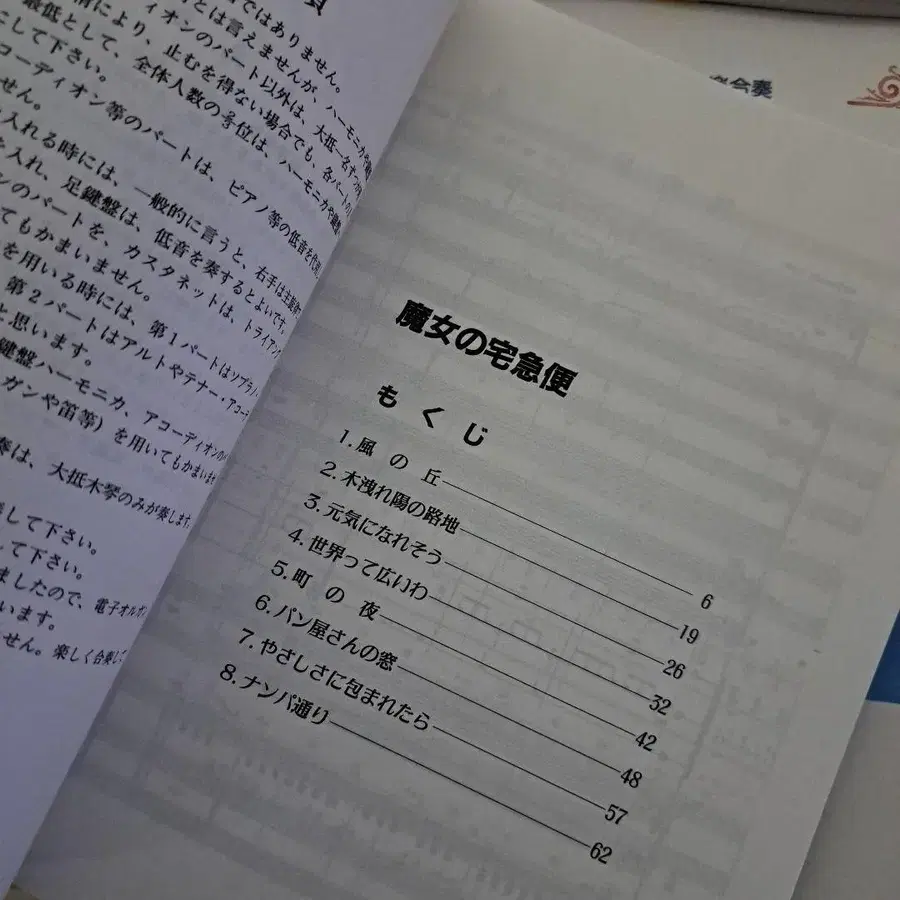 貝
ではありません。
とは言えませんが、ハーモニカや鍵盤
ィオンのパート以外は、大抵一名ずつ
情により、止むを得ない場合でも、各パートの
最低として、全体人数の多い部位は、ハーモニカや
にして下さい。
コーディオン等のパートは、ピアノ等の低音を代用
せん。
入れる時には、一般的に言うと、右手は主旋律
を入れ、足鍵盤は、低音を奏するとよいです。
ンのパートを、カスタネットは、トライアング
てもかまいません。
を用いる時には、第1パートはソプラノ
第2パートはアルトやテナー・アコーデ
と思います。
鍵盤ハーモニカ、アコーディオンのパ
ガンや笛等）を用いてもかまいませ
奏は、大抵木琴のみが奏します。
して下さい。
して下さい。
ましたので、電子オルガン
います。
せん。楽しく合奏して
合奏
魔女の宅急便
もくじ
1. 風の丘 6
2. 木洩れ陽の路地 19
3. 元気になれそう 26
4. 世界って広いわ 32
5. 町の夜 42
6. パン屋さんの窓 48
7. やさしさに包まれたら 57
8. ナンパ通り 62